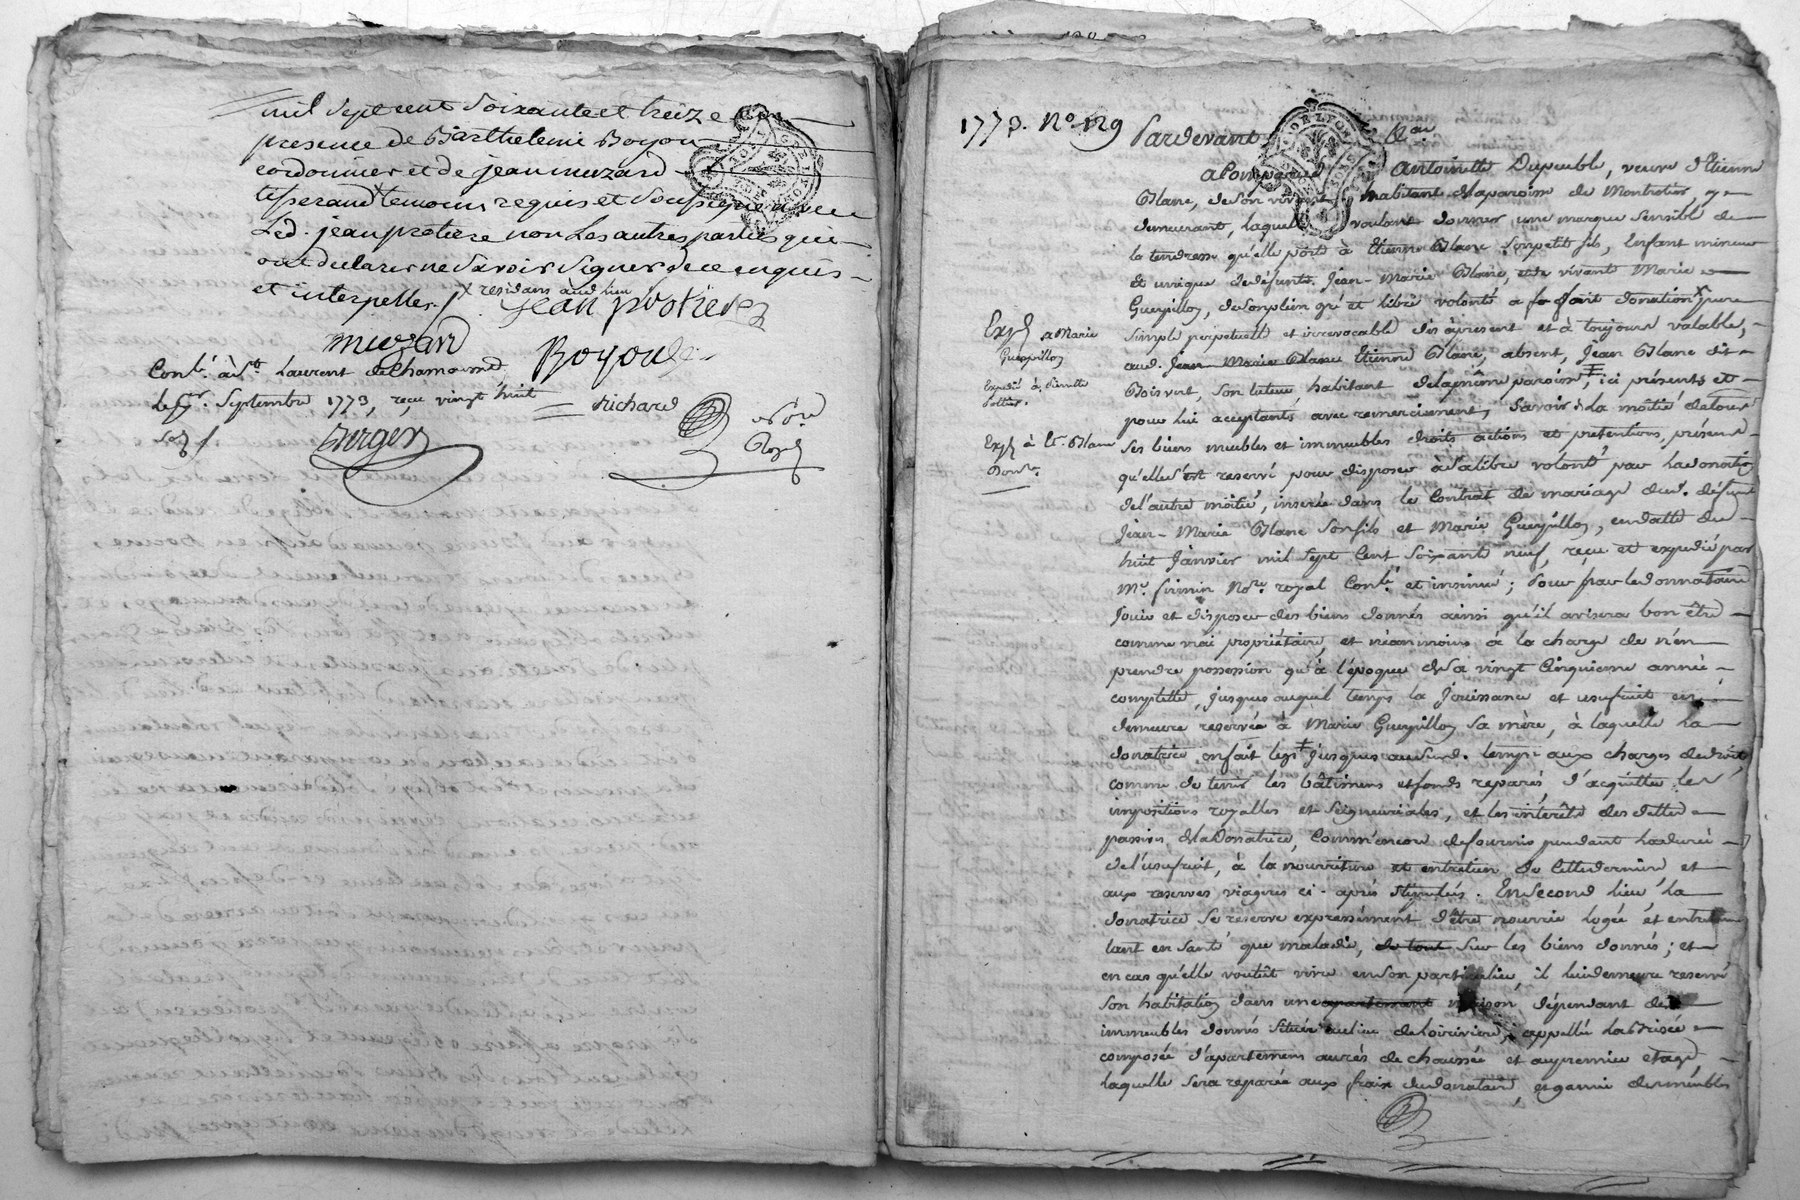 mil sept cent soixante et treize en
presence de Barthelemi Boyou
cordonnier et de jean muzard
tisserand x temoins requis et soussignés avec
Led. jean protiere non les autres parties qui
ont declarer ne savoir signer de ce enquis
et interpellés. x residans aud. lieu
jean protiere
muzard
Boyoud
Conlé. à St. Laurent de Chamousset
le Septembre 1773, reçu vingt huit
sols
Berger
Richard
Nore
Royal
1773. No. 129
Pardevant
a Comparue Antoinette Dupeuble, veuve d'Etienne
Blanc, de son vivant habitant de la paroisse de Montrotier y
demeurant, laquelle voulant donner une marque sensible de
la tendresse qu'elle porte à Etienne Blanc son petit fils, Enfant mineur
et unique de défunt Jean-Marie Blanc, et de vivante Marie
Guerpillon, de son plein gré et libre volonté a fait donation pure
simple perpetuelle et irrevocable dès àpresent et à toujours valable,
aud. Jean Marie Blanc Etienne Blanc, absent, Jean Blanc dit
Boisvert, son tuteur habitant de la même paroisse, ici présents et
pour lui acceptants avec remerciement, Savoir de la moitié de tous
ses biens meubles et immeubles droits actions et prétentions, présents
qu'elle s'est reservé pour disposer à sa libre volonté par la donation
de l'autre moitié, inserée dans le Contrat de mariage dud. défunt
Jean-Marie Blanc son fils et Marie Guerpillon, en datte du
huit Janvier mil sept Cent soixante neuf, reçu et expedié par
Me. firmin Nore. royal Conlé. et insinué; pour par le donnataire
Jouir et disposer des biens donnés ainsi qu'il avisera bon être
comme vrai propriétaire, et néanmoins à la charge de n'en
prendre possession qu'à l'époque de sa vingt Cinquieme année
complette, jusques auquel temps la Jouissance et usufruit en
demeure reservée à Marie Guerpillon sa mère, à laquelle la
donatrice en fait legs jusques aud. temps aux charges de droit
comme de tenir les bâtimens et fonds reparés, d'acquitter les
impositions royalles et Seigneuriales, et les intérêts des dettes
passives de la Donatrice, Comme encore de fournir pendant la durée
de l'usufruit, à la nourriture et entretien de Cette derniere et
aux reserves viageres ci-après stipulées. En second lieu la
donatrice se reserve expressément d'être nourrie logée et entretenue
tant en santé que maladie, de tout sur les biens donnés; et
en cas qu'elle voulût vivre en son particulier, il lui demeure reservé
son habitation dans une apartement maison dépendant des
immeubles donnés situés au lieu de appellée la brisée
composée d'apartemens au rés de chaussée et au premier etage,
laquelle sera reparée aux fraix du donataire, et garnie de meubles
Expd. a Marie
Guerpillon
Expedié à Pierrette
Poltier.
Expd. à Et. Blanc
Donre.